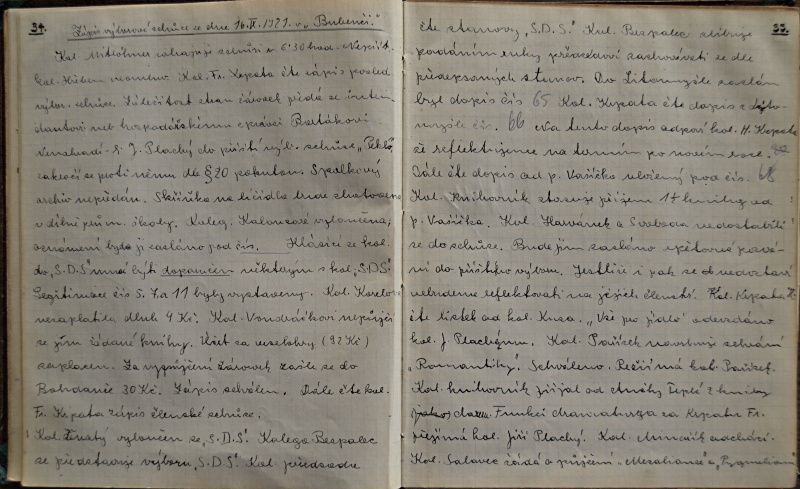 34.
Zápis výborové schůze ze dne 16.II.1921 v „Bubenči."
Kol. Mitiöhner zahajuje schůzi v 6·30 hod. Nepřít.
kol. Hükem neomluv. Kol. Fr. Kopata čte zápis posled.
výbor. schůze. Záležitost stran žárovek předá se inten-
dantovi neb hospodářskému správci Bartákovi.
Nenahradí-li J. Plachý do příští výb. schůze „Pekla"
zakročí se proti němu dle § 20 pokutou. Spolkový
archiv nepředán. Skříňka na líčidla bude zhotovena
v dílně prům. školy. Koleg. Kalousové vyloučena;
oznámení bylo jí zasláno pod čís. Hlásící se kol.
do „S.D.S." musí býti doporučen některým s kol. „S.D.S."
Legitimace čís 5. 7. a 11 byly vystaveny. Kol. Karelová
nezaplatila dluh 4 Kč. Kol. Vondráčkovi nepůjčí
se jím žádané knihy. Účet za veselohry (92 Kč)
zaplacen. Za vypůjčení žárovek zašle se do
Bohdanče 30 Kč. Zápis schválen. Dále čte kol.
Fr. Kopata zápis členské schůze.
Kol. vyloučen ze „S.D.S." Kolega Bezpalec
se představuje výboru „S.D.S." Kol. předseda
35.
čte stanovy „S.D.S." Kol. Bezpalec slibuje
podáním ruky předsedovi zachovávati se dle
předepsaných stanov. Do Litomyšle zaslán
byl dopis čís 65 Kol. Kopata čte dopis z Lito-
myšle čís. 66 Na tento dopis odpoví kol. H. Kopata
že reflektujeme na termín po novém roce.
Dále čte dopis od p. Vašíčka uložený pod čís. 68
Kol. knihovník stvrzuje příjem 14 knih od
p. Vašíčka. Kol. Havránek a Svoboda nedostavili
se do schůze. Bude jim zasláno opětovné pozvá-
ní do příštího výboru. Jestliže i pak se nedostaví
nebudeme reflektovati na jejich členství. Kol. Kopata H.
čte lístek od kol. Kusa. „Vše po jídle" odevzdáno
kol. J. Plachým. Kol. Pařízek navrhuje sehrání
„Romantiky." Schváleno. Režii má kol. Pařízek.
Kol. knihovník přijal od Teplé 2 knihy
darem. Funkci dramaturga za Kopatu Fr.
přejímá kol. Jiří Plachý. Kol. odchází.
Kol. Salavec žádá o půjčení „Mesaliance" a „Pygmaliona"